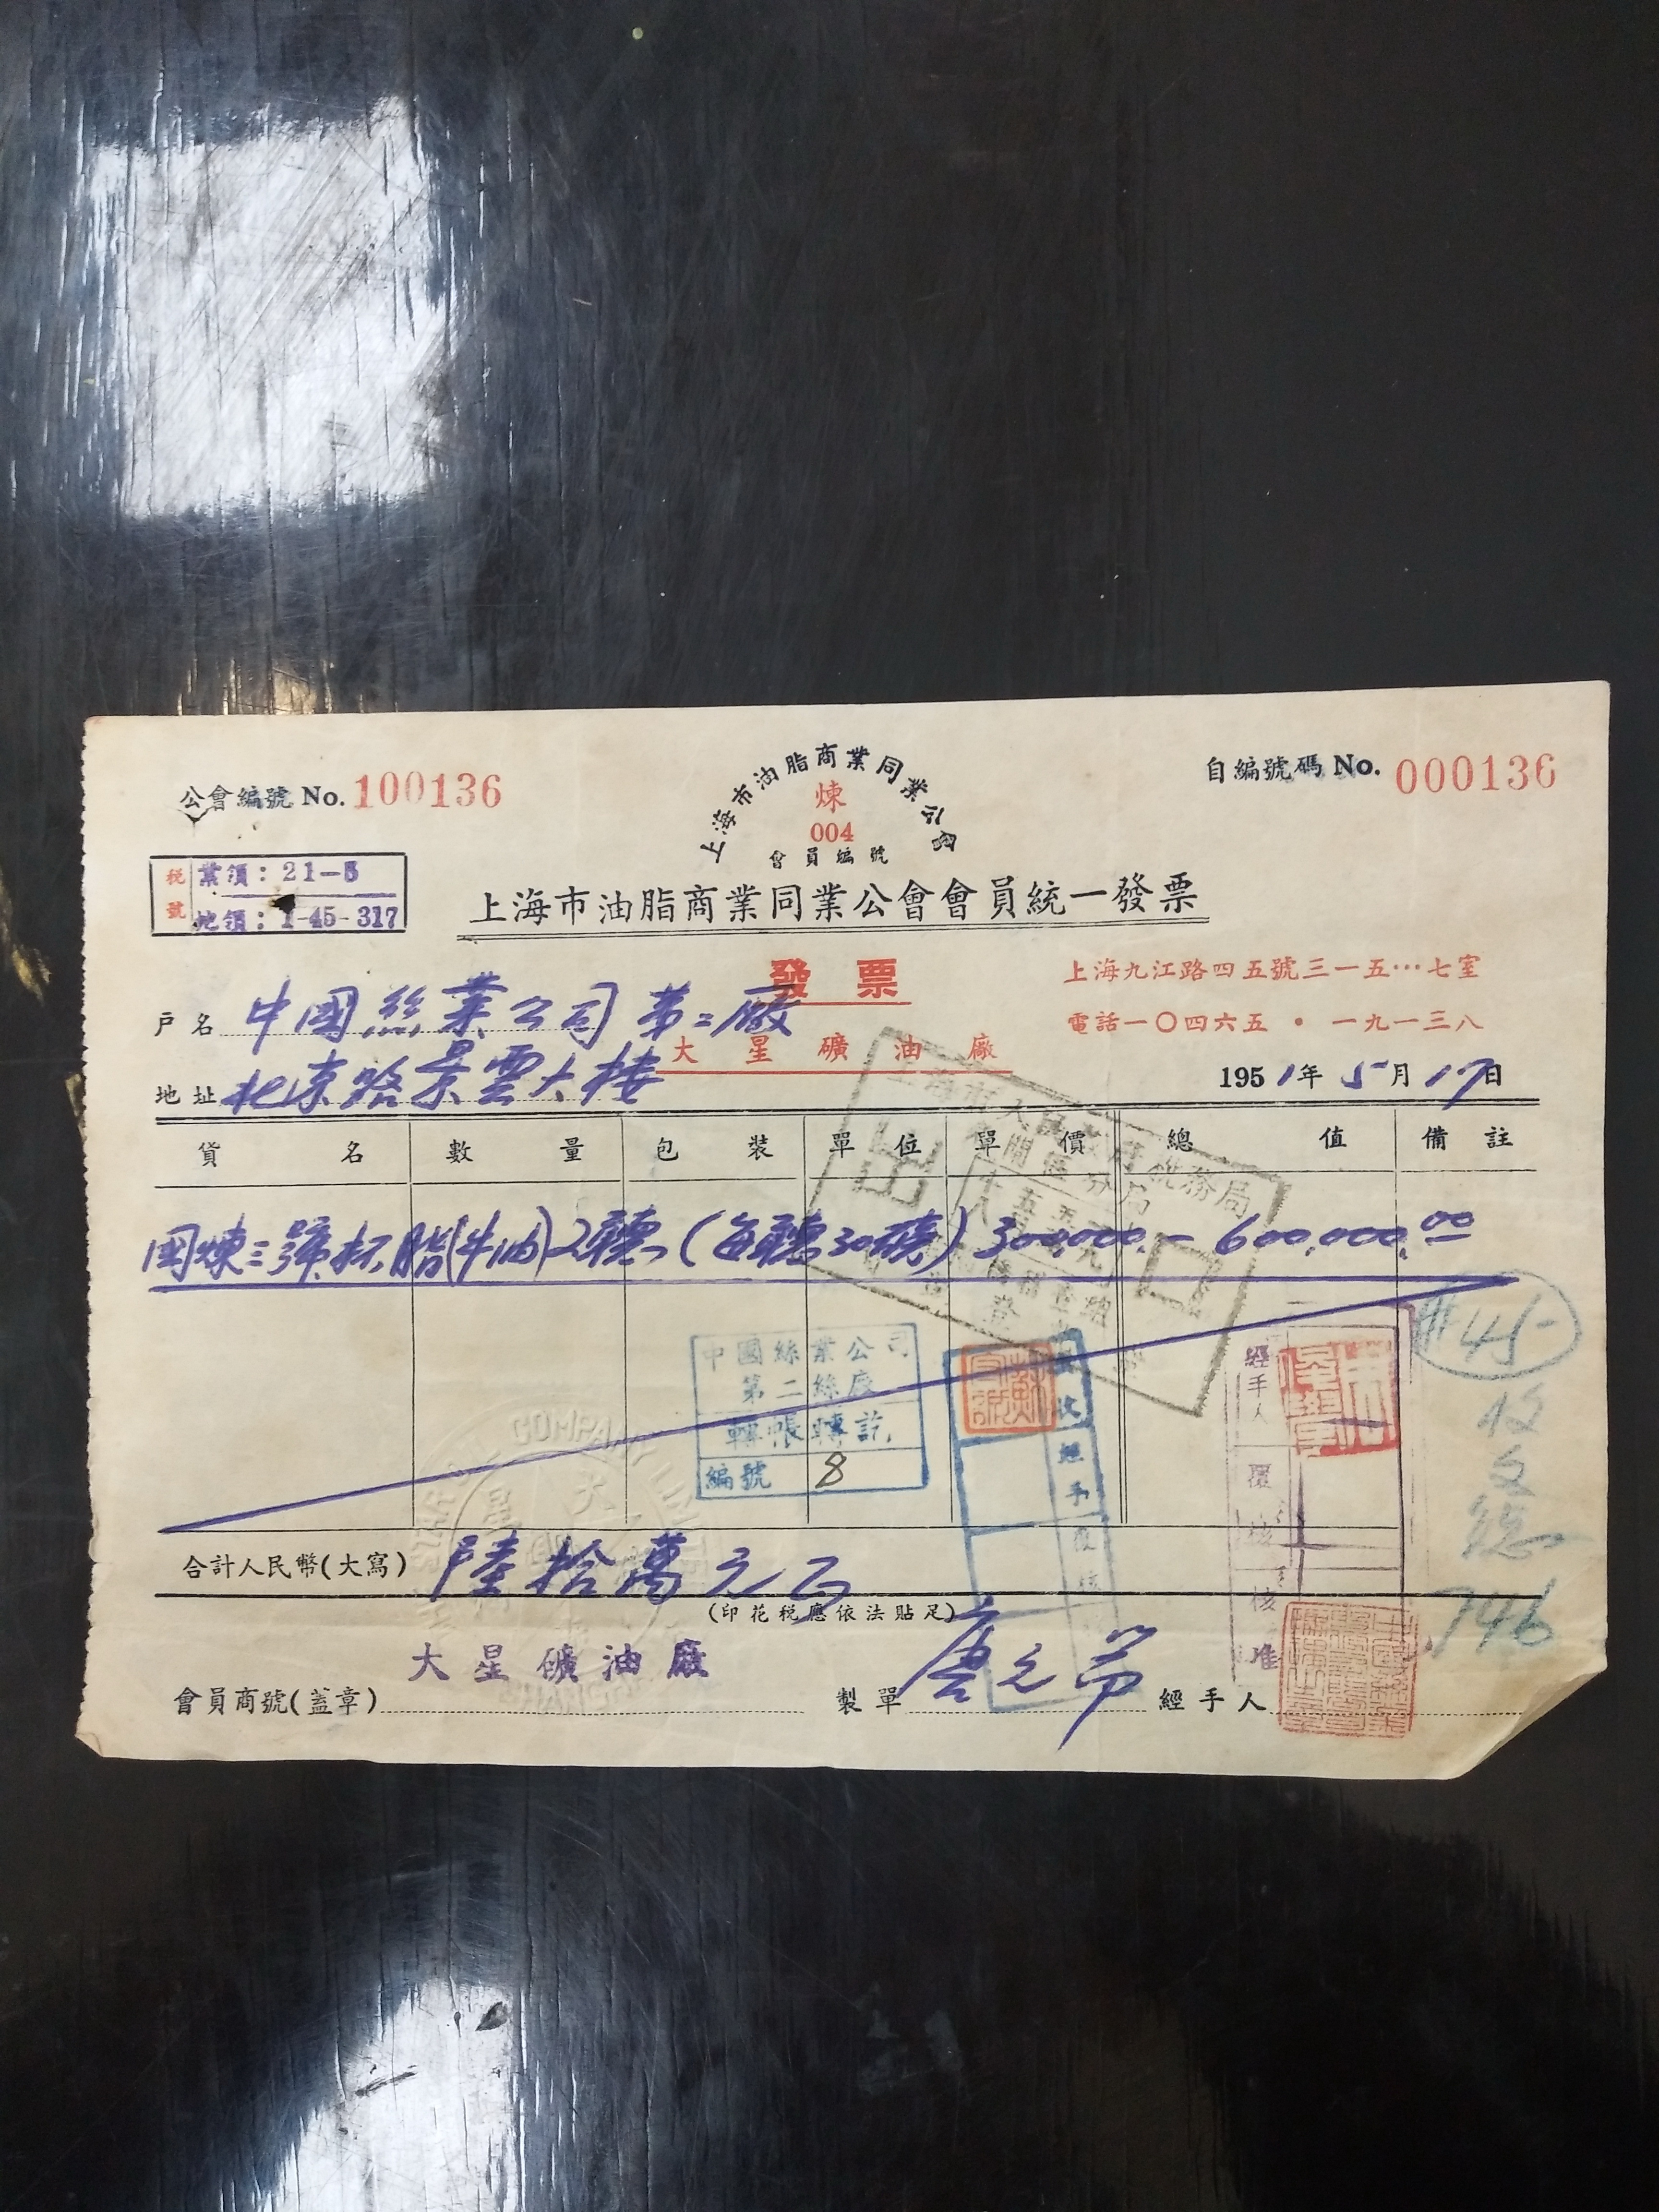 公會編號 No. 100136
上海市油脂商業同業公會
煉
004
會員編號
自編號碼 No. 000136
税號
業領: 21-5
地領: 1-45-317
上海市油脂商業同業公會會員統一發票
發票
上海九江路四五號三一五…七室
戶名 中國絲業公司第二廠
電話一〇四六五·一九一三八
大星礦油廠
地址 北京路景雲大楼
1951年5月17日
貨名 數量 包裝 單位 單價 總值 備註
國煉三號杯脂(牛油) 2聽 (每聽30磅) 300,000.- 600,000.00
出口
中國絲業公司
第二絲廠
轉帳轉訖
編號 8
經手人
覆核
核准
收文總
746
合計人民幣(大寫) 陸拾萬元正
(印花税應依法貼足)
大星礦油廠
會員商號(蓋章) 製單 經手人